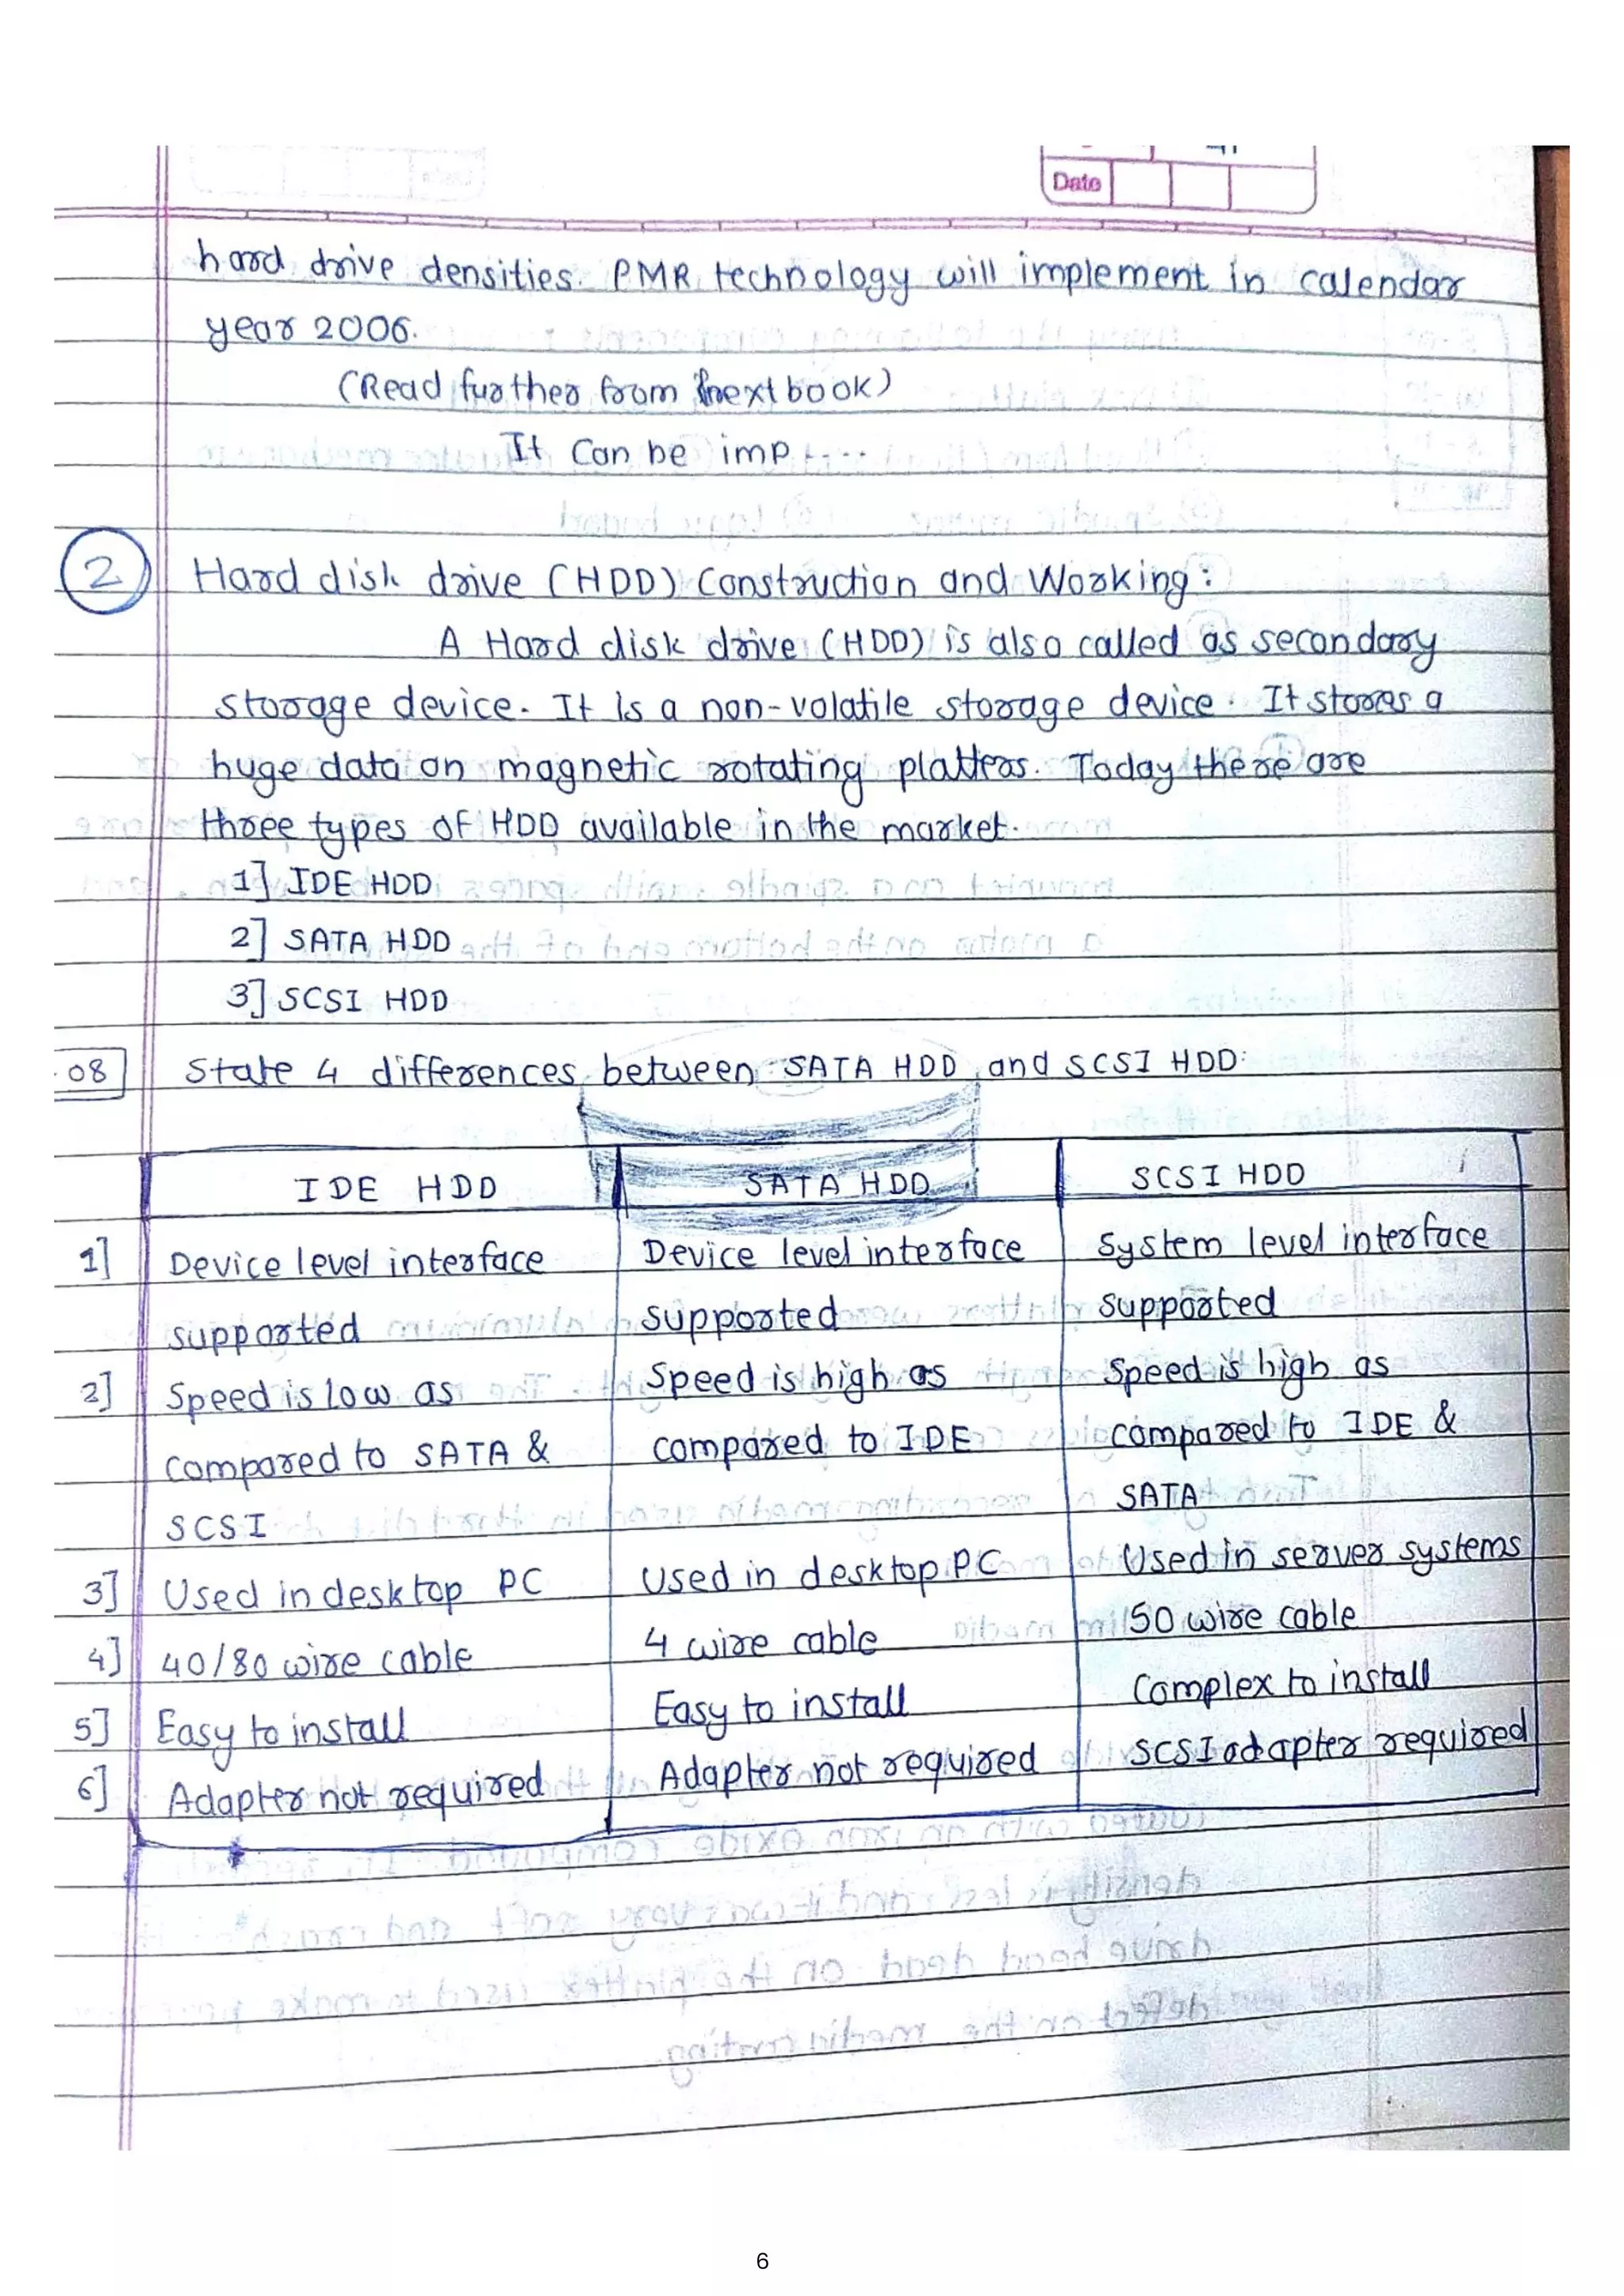 Date
hard drive densities. PMR technology will implement in calendar
year 2006.
(Read further from textbook)
It Can be imp ....
2 Hard disk drive (HDD) Construction and Working:
A Hard disk drive (HDD) is also called as secondary
storage device. It Is a non-volatile storage device. It stores a
huge data on magnetic rotating platters. Today there are
three types of HDD available in the market.
1] IDE HDD
2] SATA HDD
3] SCSI HDD
08 State 4 differences between SATA HDD and SCSI HDD:
IDE HDD SATA HDD SCSI HDD
1] Device level interface Device level interface System level interface
supported supported supported
2] Speed is low as Speed is high as Speed is high as
compared to SATA & compared to IDE compared to IDE &
SCSI SATA
3] Used in desktop PC Used in desktop PC Used in server systems
4] 40/80 wire cable 4 wire cable 50 wire cable
5] Easy to install Easy to install Complex to install
6] Adapter not required Adapter not required SCSI adapter required
6